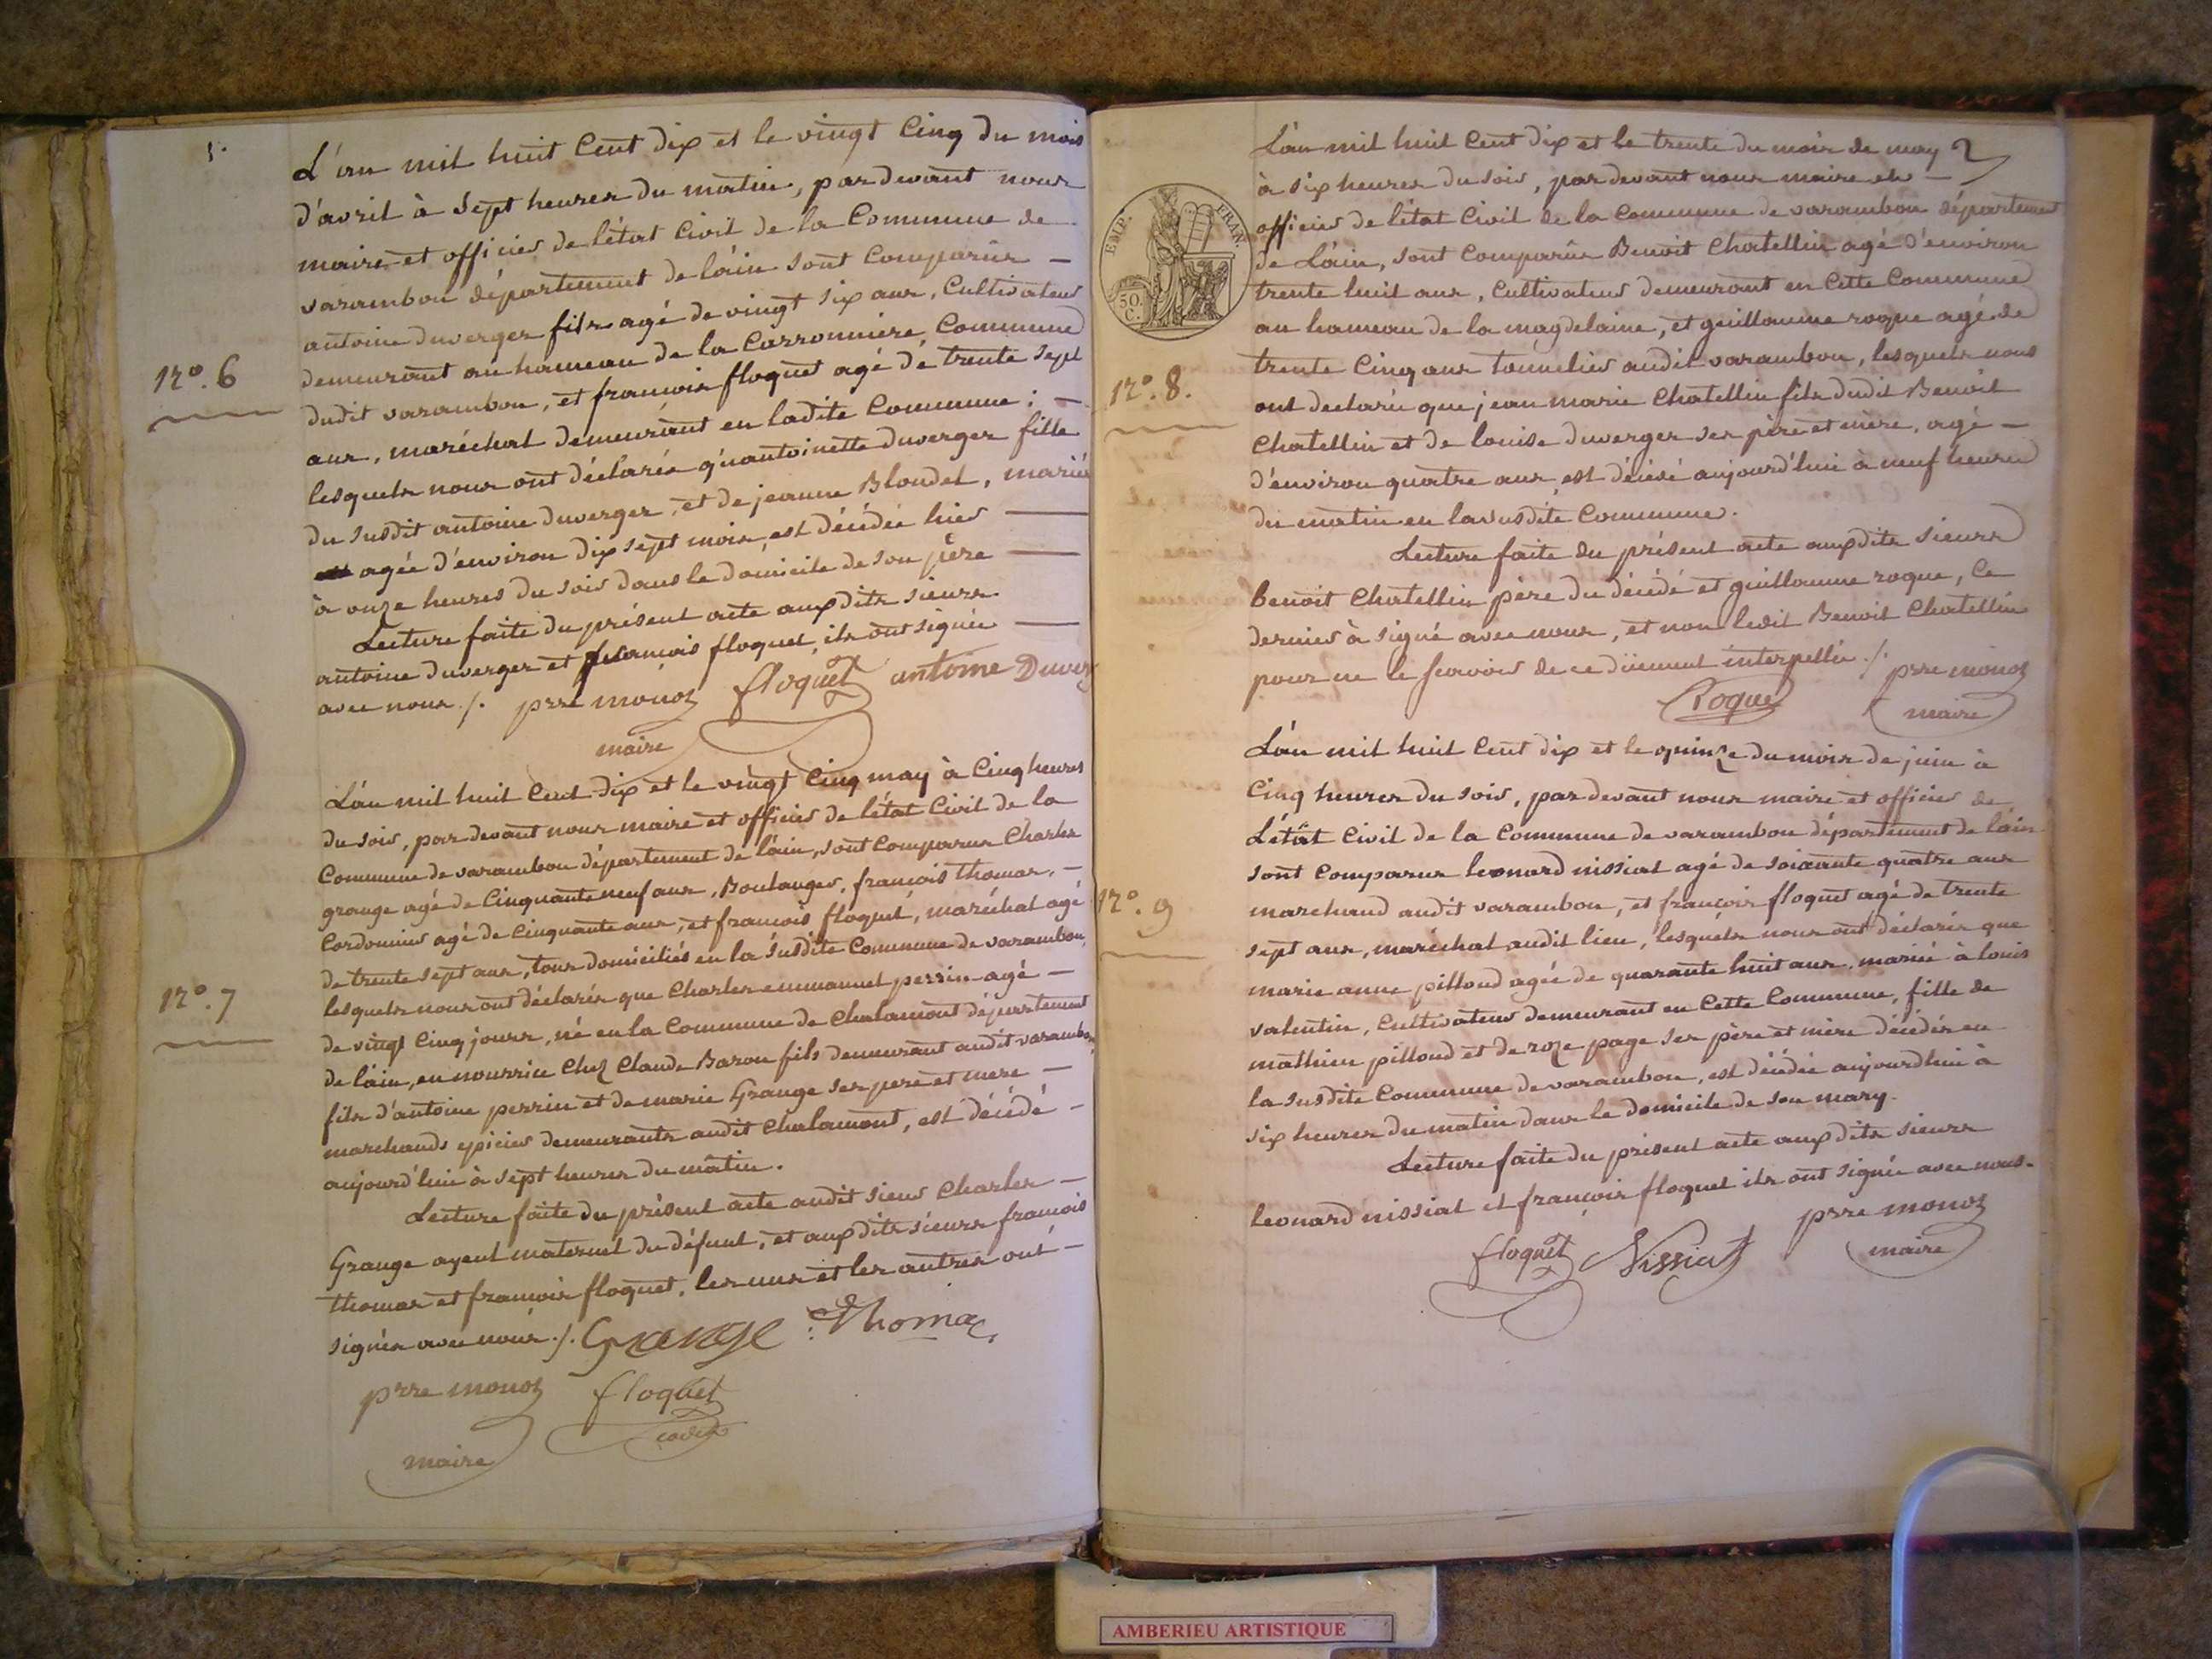 5.
L'an mil huit Cent dix et le vingt Cinq du mois
d'avril à Sept heures du matin, pardevant nous
maire et officier de l'état Civil de la Commune de
varambon département de láin sont Comparûs —
antoine duverger fils agé de vingt six ans, Cultivateur
demeurant au hameau de la Carronnière Commune
N.º 6
dudit varambon, et francois floquet agé de trente sept
ans, maréchal demeurant en ladite Commune; —
lesquels nous ont déclarés qu'antoinette duverger fille
du susdit antoine duverger, et de jeanne Blondel, mariés
agée d'environ dix sept mois, est décédée hier —
à onze heures du soir dans le domicile de son père —
Lecture faite du présent acte auxdits sieurs
antoine duverger et francois floquet, ils ont signés —
avec nous ./. prre monoz floquet antoine Duver
maire
L'an mil huit Cent dix et le vingt Cinq may à Cinq heures
du soir, par devant nous maire et officier de l'état Civil de la
Commune de varambon département de láin, sont Comparus Charles
grange agé de Cinquante neuf ans, Boulanger, francois thomas, —
Cordonnier agé de Cinquante ans, et francois floquet, maréchal agé
de trente sept ans, tous domiciliés en la susdite Commune de varambon,
N.º 7
lesquels nous ont déclarés que Charles emmanuel perrin agé —
de vingt Cinq jours, né en la Commune de Chalamont département
de láin, en nourrice Chez Claude Baron fils demeurant audit varambon,
fils d'antoine perrin et de marie Grange ses pere et mere —
marchands epicier demeurants audit Chalamont, est décédé —
aujourd'hui à sept heures du matin.
Lecture faite du présent acte audit sieur Charles —
Grange ayeul maternel du défunt, et auxdits sieurs francois
thomas et francois floquet, les uns et les autres ont —
signés avec nous ./. Grange Thomas
prre monoz floquet
maire
L'an mil huit Cent dix et le trente du mois de may
à six heures du soir, pardevant nous maire et —
officier de l'état Civil de la Commune de varambon département
EMP. FRAN.
50. C.
de Láin, sont Comparûs Benoit Chatellin agé d'environ
trente huit ans, Cultivateur demeurant en Cette Commune
au hameau de la magdelaine, et guillaume roque agé de
trente Cinq ans tonnelier audit varambon, lesquels nous
N.º 8.
ont declarés que jean marie Chatellin fils dudit Benoit
Chatellin et de louise duverger ses père et mère, agé —
d'environ quatre ans, est décédé aujourd'hui à neuf heures
du matin en la susdite Commune.
Lecture faite du présent acte auxdits sieurs
benoit Chatellin père du décédé et guillaume roque, Ce
dernier à signé avec nous, et non ledit Benoit Chatellin
pour ne le scavoir de ce düement interpellé ./. prre monoz
Roque maire
L'an mil huit Cent dix et le quinze du mois de juin à
Cinq heures du soir, pardevant nous maire et officier de
L'état Civil de la Commune de varambon département de láin
sont Comparus leonard nissiat agé de soixante quatre ans
N.º 9
marchand audit varambon, et françois floquet agé de trente
sept ans, maréchal audit lieu, lesquels nous ont déclarés que
marie anne pilloud agée de quarante huit ans, mariée à louis
valentin, Cultivateur demeurant en Cette Commune, fille de
mathieu pilloud et de roze page ses père et mère décédés en
la susdite Commune de varambon, est décédée aujourdhui à
six heures du matin dans le domicile de son mary.
Lecture faite du présent acte auxdits sieurs
leonard nissiat et françois floquet ils ont signés avec nous.
floquet Nissiat prre monoz
maire
AMBERIEU ARTISTIQUE